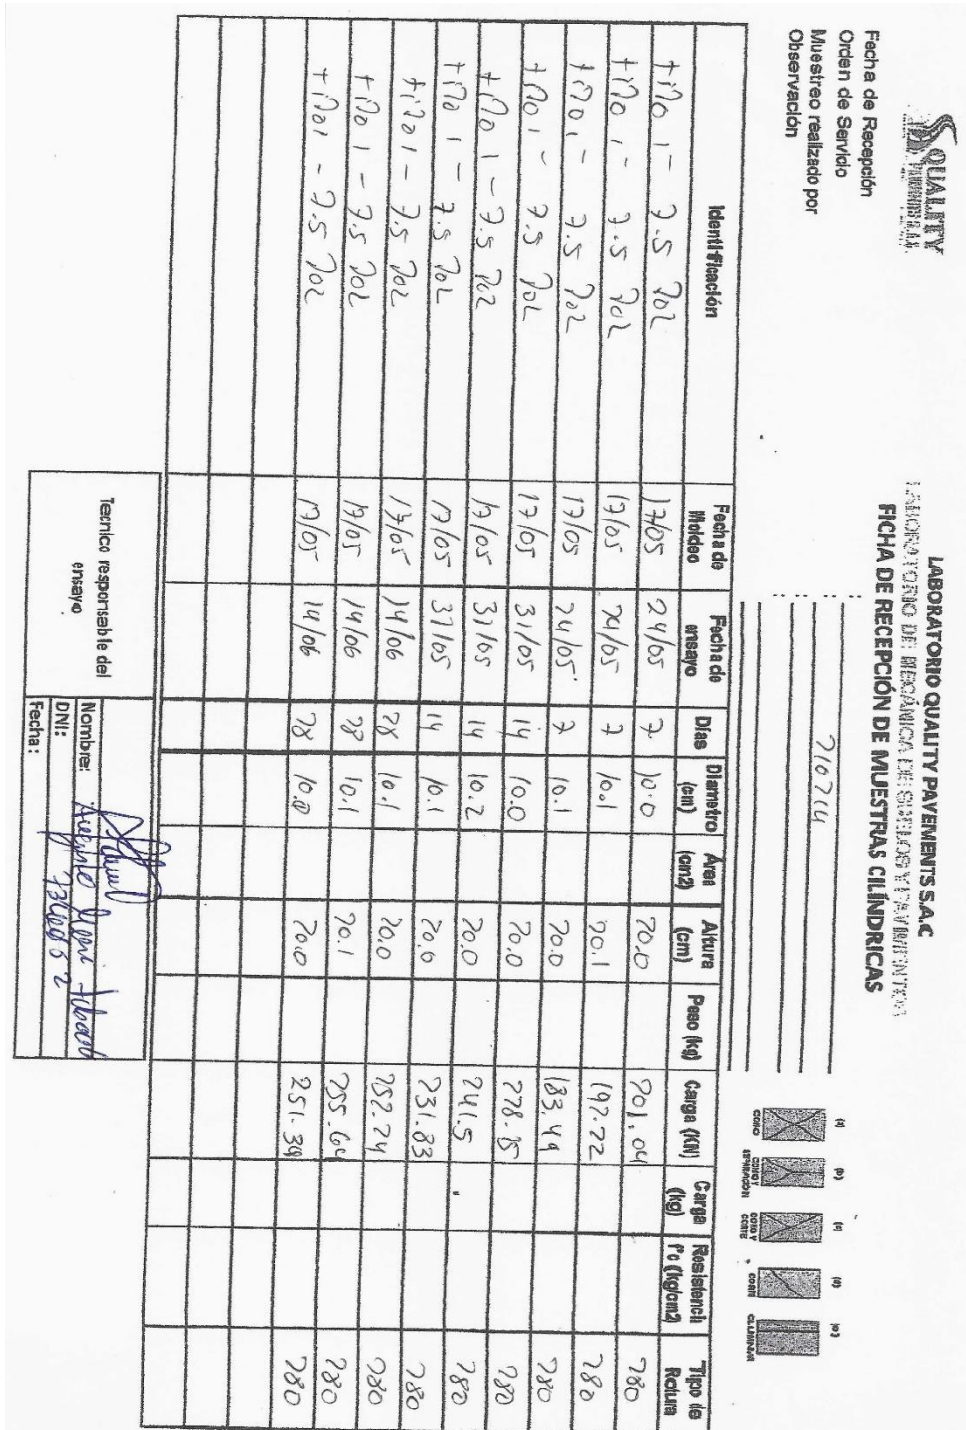 QUALITY
PAVEMENTS S.A.C.
LABORATORIO QUALITY PAVEMENTS S.A.C
LABORATORIO DE MECÁNICA DE SUELOS Y PAVIMENTOS
FICHA DE RECEPCIÓN DE MUESTRAS CILÍNDRICAS
Fecha de Recepción :
Orden de Servicio : 210214
Muestreo realizado por :
Observación :
(a) (b) (c) (d) (e)
CONO CONO Y SEPARACION CONO Y CORTE CORTE COLUMNAR
Identificación Fecha de Moldeo Fecha de ensayo Días Diametro (cm) Área (cm2) Altura (cm) Peso (kg) Carga (KN) Carga (kg) Resistenci f'c (kg/cm2) Tipo de Rotura
1- 7.5 17/05 24/05 7 10.0 20.0 201.04 280
1- 7.5 17/05 24/05 7 10.1 20.1 197.22 280
1- 7.5 17/05 24/05 7 10.1 20.0 183.49 280
1- 7.5 17/05 31/05 14 10.0 20.0 228.85 280
1- 7.5 17/05 31/05 14 10.2 20.0 241.5 280
1- 7.5 17/05 31/05 14 10.1 20.0 231.83 280
1- 7.5 17/05 14/06 28 10.1 20.0 252.24 280
1- 7.5 17/05 14/06 28 10.1 20.1 255.64 280
1- 7.5 17/05 14/06 28 10.0 20.0 251.39 280
Tecnico responsable del ensayo
Nombre:
DNI:
Fecha: